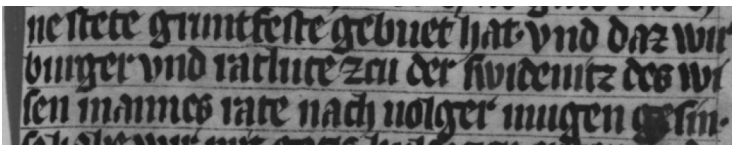 ne stete gruntfeste gebuet hat· vnd daz wir
burger vnd ratlute zcu der swidenitz des wi
sen mannes rate nach uolger mugen gesin·